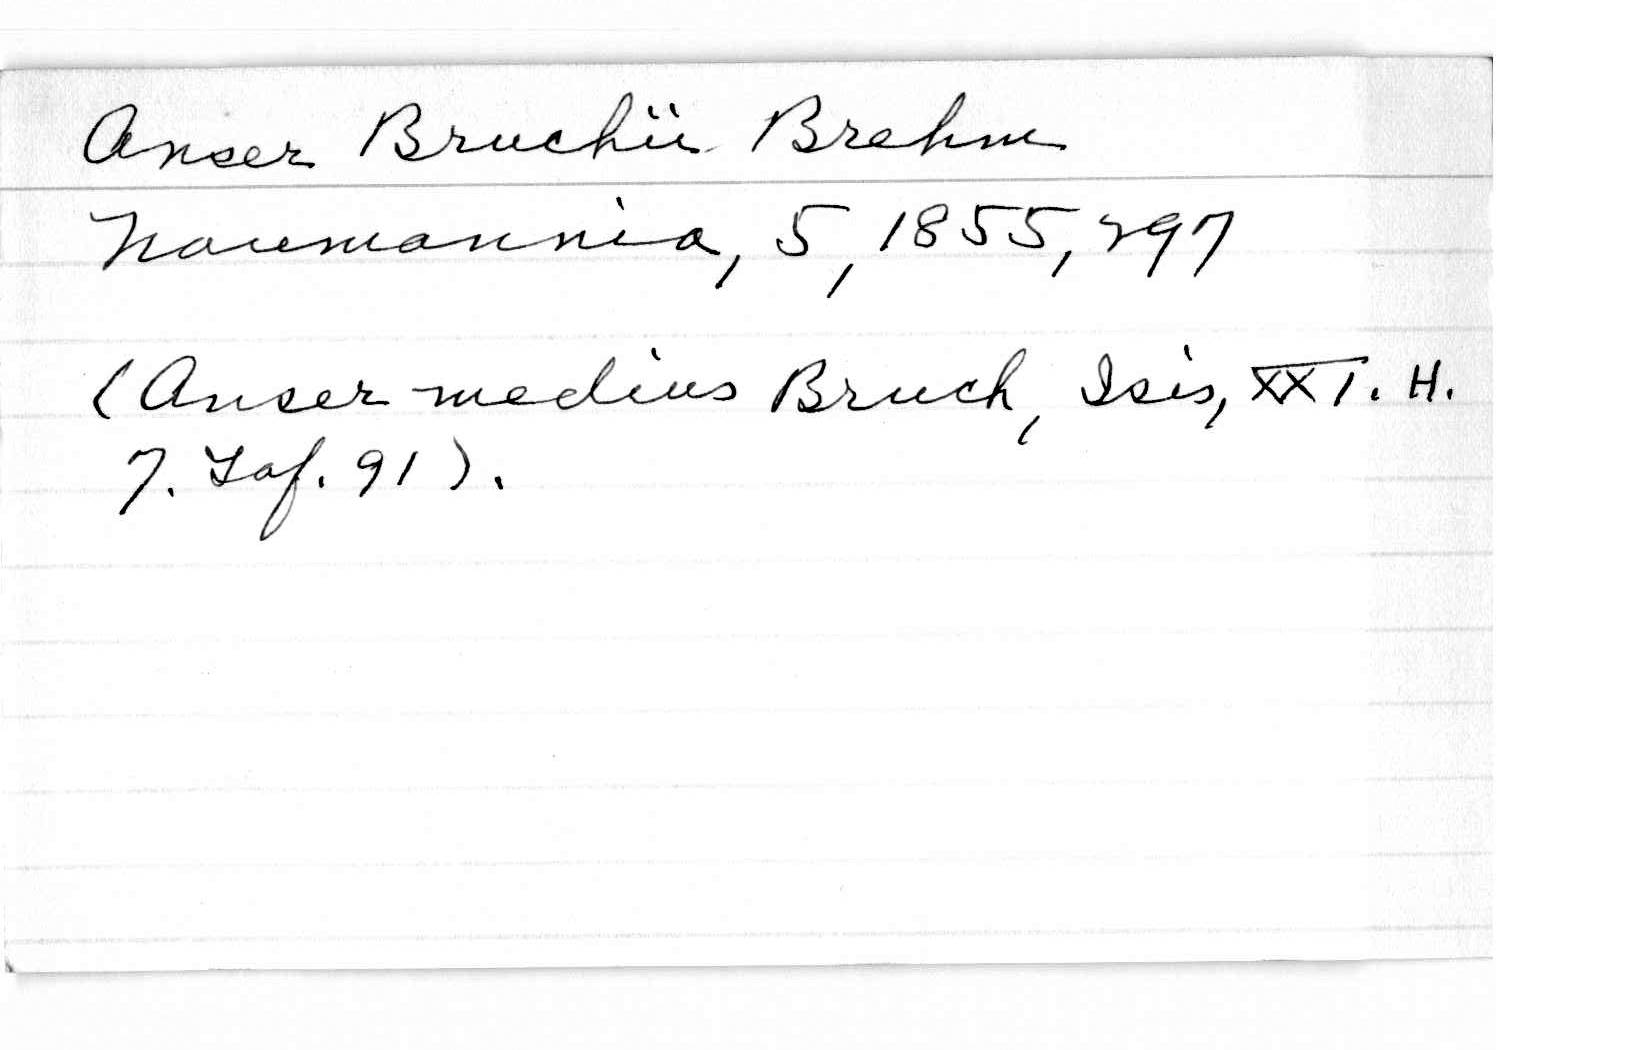 Anser Bruchii Brehm
Naumannia, 5, 1855, 297
(Anser medius Bruch, Isis, XXI. H.
7. Taf. 91).